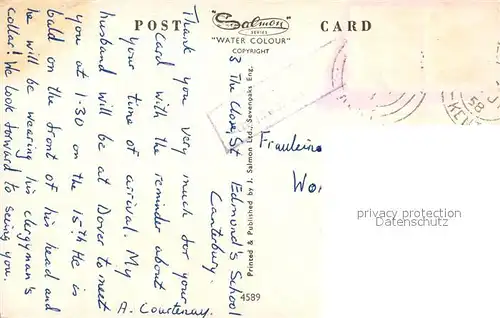 POST CARD
Salmon
SERIES
"WATER COLOUR"
COPYRIGHT
3 The Close, St Edmund's School
Canterbury.
Thank you very much for your
card with the reminder about
your time of arrival. My
husband will be at Dover to meet
you at 1.30 on the 15th He is
bald on the front of his head and
he will be wearing his clergyman's
collar! We look forward to seeing you.
A. Courtenay.
Printed & Published by J. Salmon Ltd., Sevenoaks Eng.
4589
Fraulein
Wo
privacy protection
Datenschutz
58
KEN